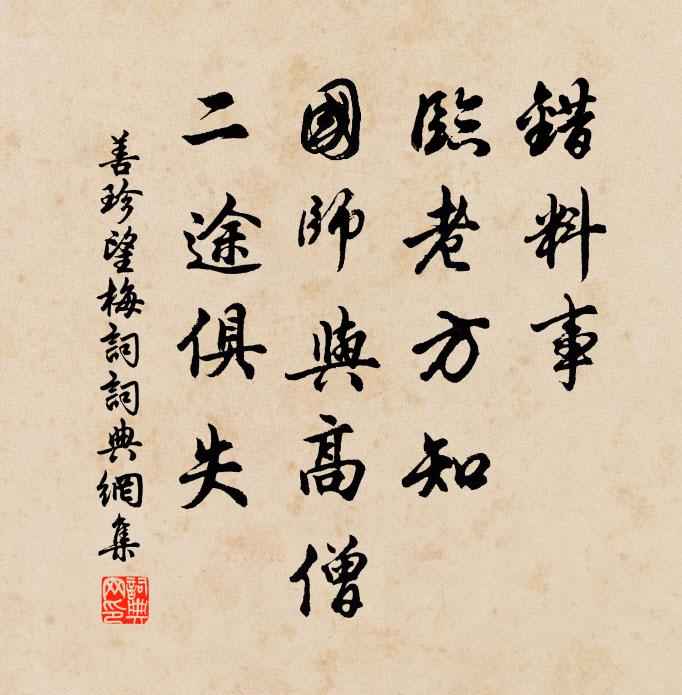 錯料事
臨老方知
國師與高僧
二途俱失
善珍望梅詞詞典網集
詞典網印